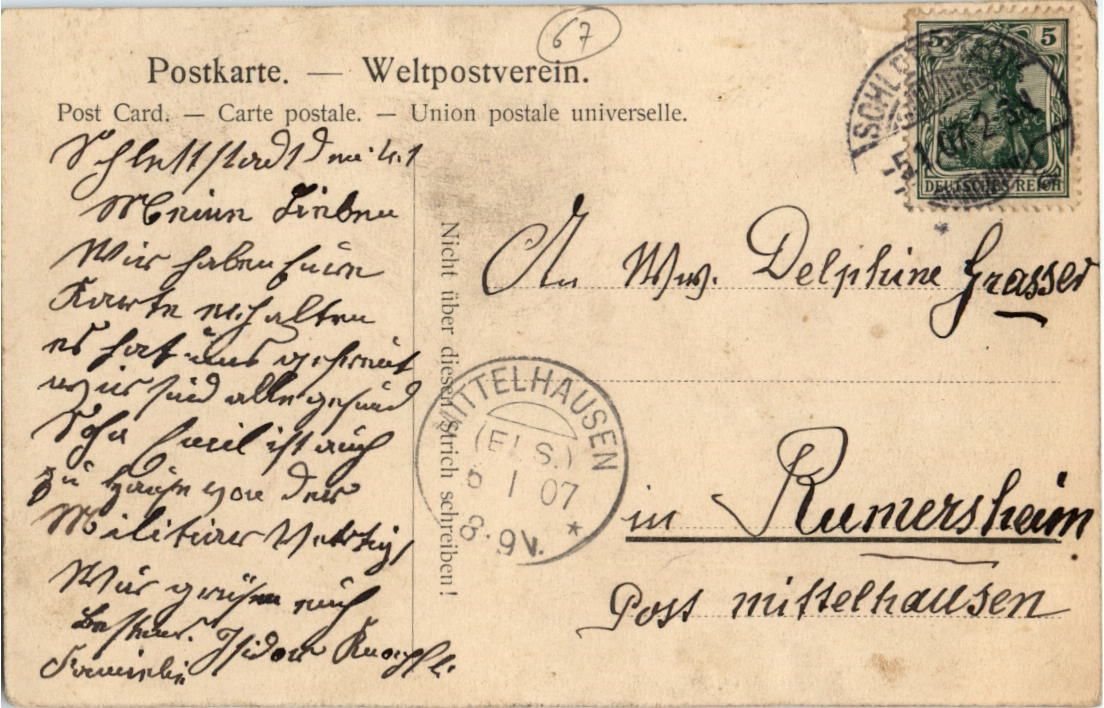 67
Postkarte. — Weltpostverein.
Post Card. — Carte postale. — Union postale universelle.
Schlettstadt den 4.1
Meine Lieben
Wir haben Eure
Karte erhalten
es hat uns gefreut
wir sind alle gesund
Emil ist auch
zu Hause von der
Militär
Wir grüßen euch
bestens. Isidor
Familie
Nicht über diesen Strich schreiben!
5 5
DEUTSCHES REICH
SCHLETTSTADT
5.1.07. 2-3N.
An Ww. Delphine Grasser
MITTELHAUSEN
(ELS.)
6 1 07
8-9V. *
in Rumersheim
Post mittelhausen